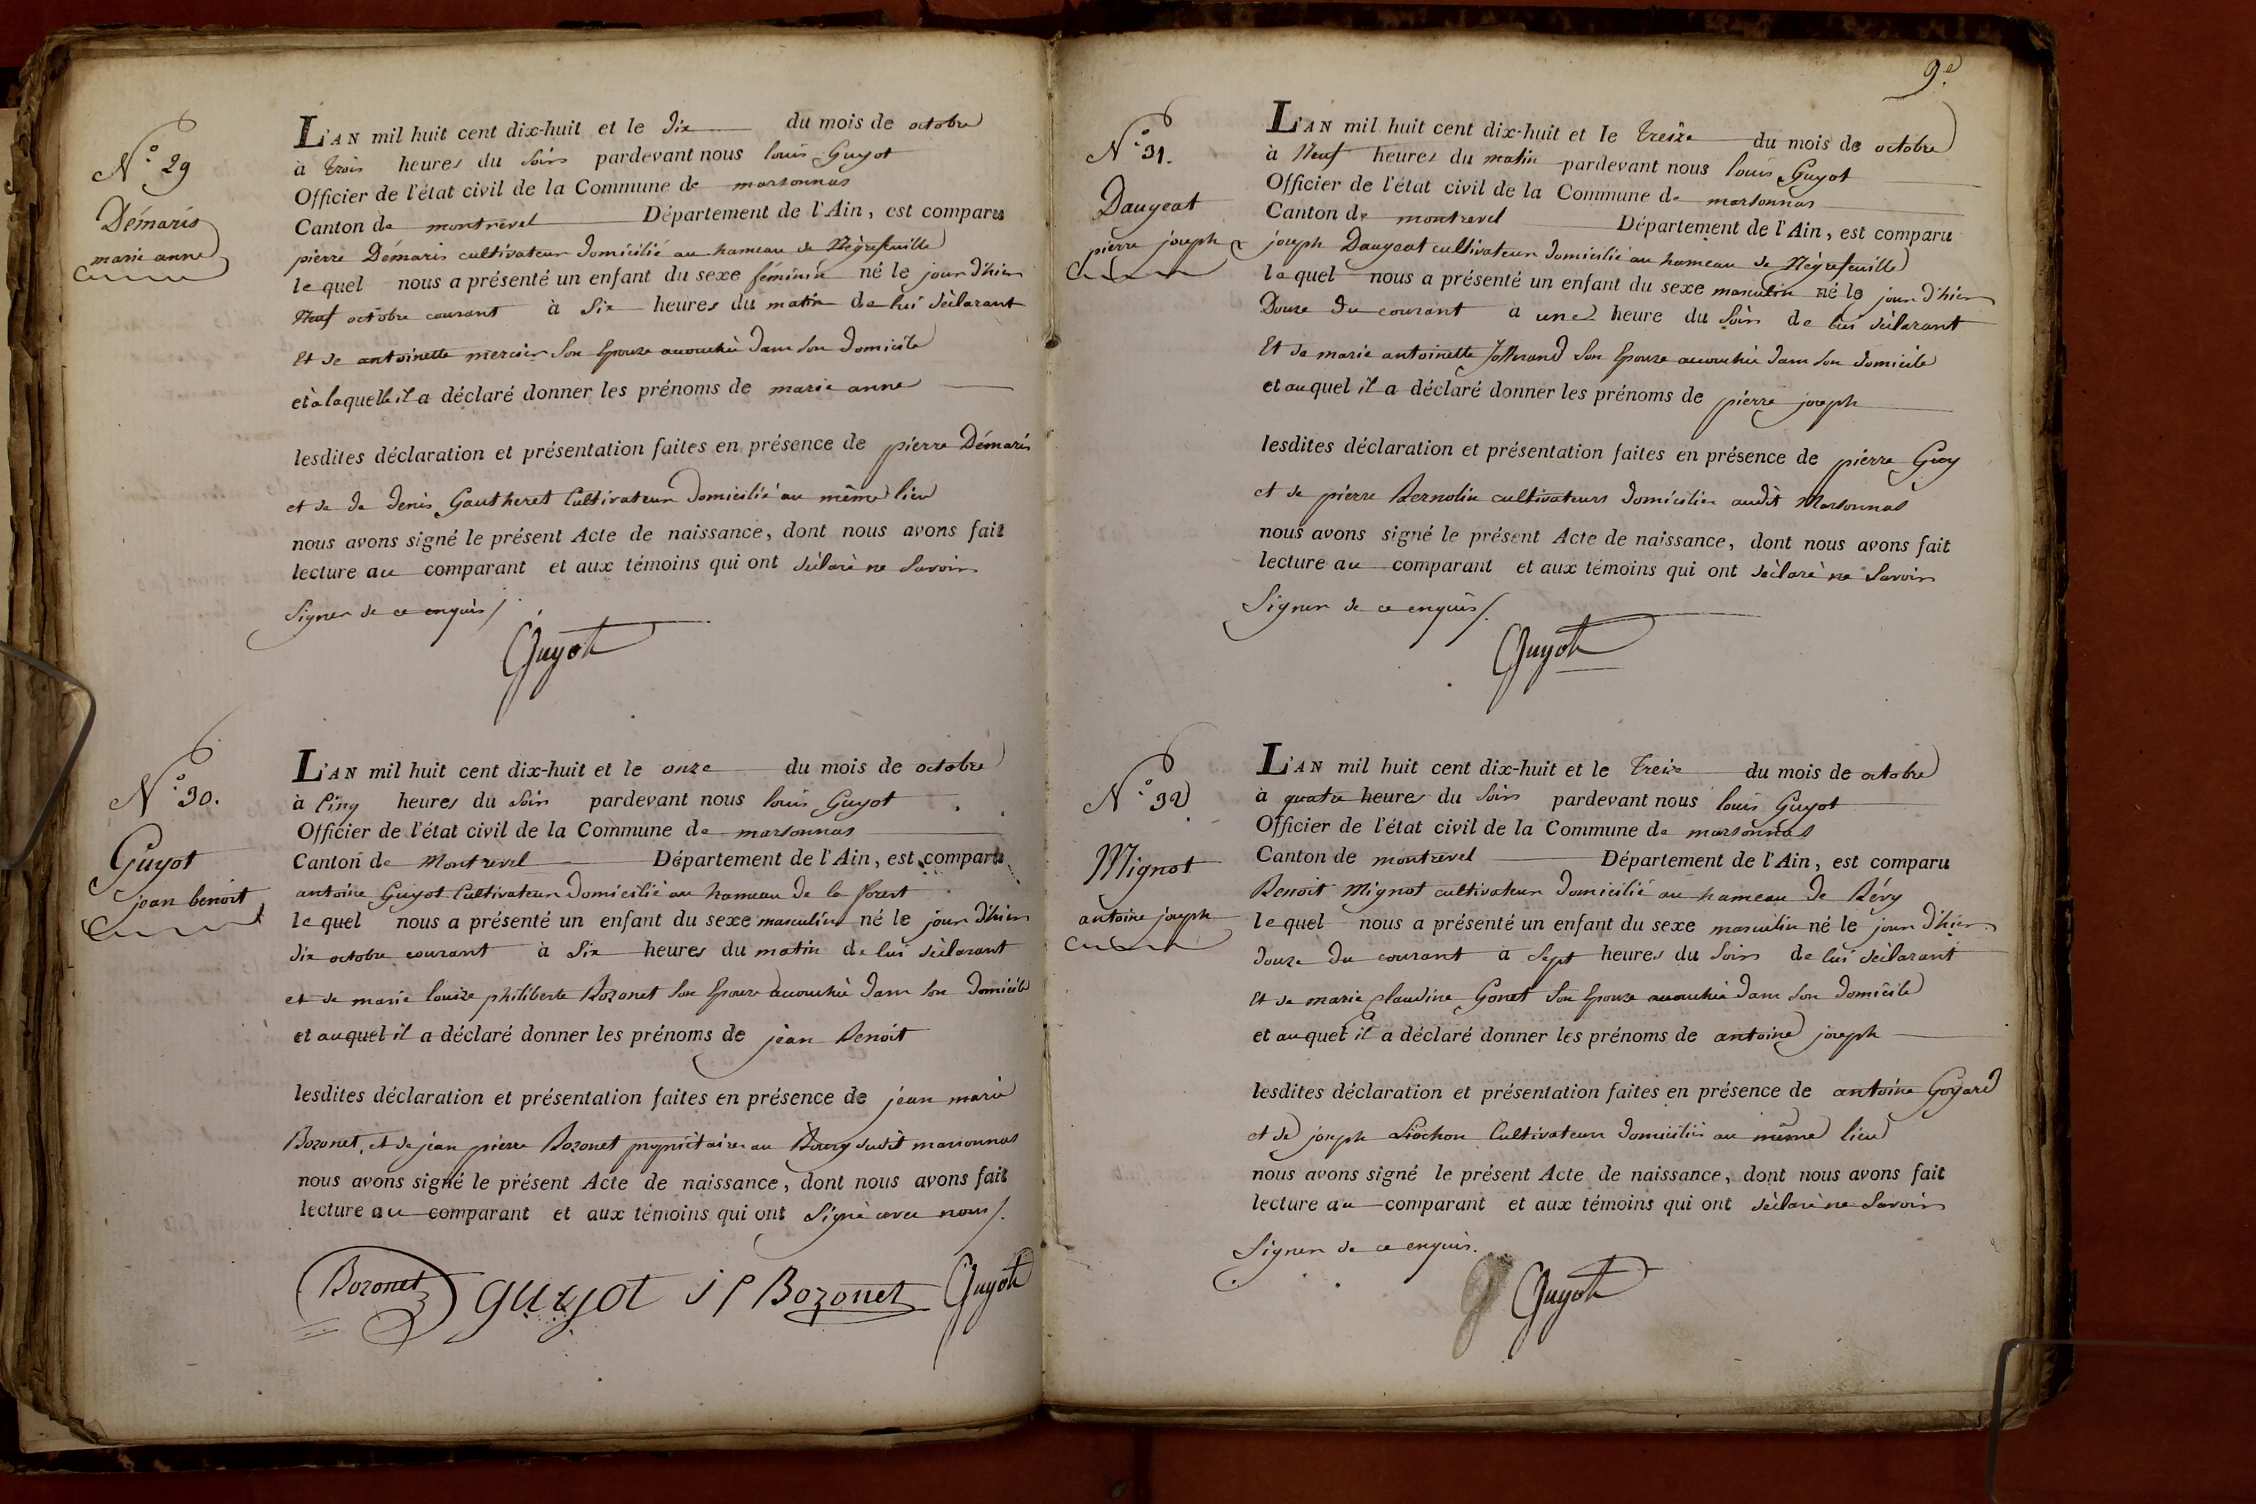 N.° 29
Démaris
marie anne
L'AN mil huit cent dix-huit et le dix du mois de octobre
à trois heures du soir pardevant nous louis Guyot
Officier de l'état civil de la Commune de marsonnas
Canton de montrevel Département de l'Ain, est comparu
pierre Démaris cultivateur domicilié au hameau de Nègrefeuille
lequel nous a présenté un enfant du sexe féminin né le jour d'hier
Neuf octobre courant à Six heures du matin de lui déclarant
Et de antoinette mercier Son Epouse accouchée dans son domicile
et à laquelle il a déclaré donner les prénoms de marie anne
lesdites déclaration et présentation faites en présence de pierre Démaris
et de de denis Gautheret Cultivateur domicilié au même lieu
nous avons signé le présent Acte de naissance, dont nous avons fait
lecture au comparant et aux témoins qui ont déclaré ne Savoir
Signer de ce enquis /.
Guyot
N.° 30.
Guyot
jean benoit
L'AN mil huit cent dix-huit et le onze du mois de octobre
à Cinq heures du Soir pardevant nous louis Guyot
Officier de l'état civil de la Commune de marsonnas
Canton de Montrevel Département de l'Ain, est comparu
antoine Guyot Cultivateur domicilié au hameau de la forest
lequel nous a présenté un enfant du sexe masculin né le jour d'hier
dix octobre courant à Six heures du matin de lui déclarant
et de marie louise philiberte Bozonet Son Epouse accouchée dans Son domicile
et auquel il a déclaré donner les prénoms de jean Benoit
lesdites déclaration et présentation faites en présence de jean marie
Bozonet, et de jean pierre Bozonet propriétaires au Bourg dudit marsonnas
nous avons signé le présent Acte de naissance, dont nous avons fait
lecture au comparant et aux témoins qui ont Signé avec nous /.
Bozonet guyot j p Bozonet Guyot
9.e
N.° 31.
Daugeat
pierre joseph
L'AN mil huit cent dix-huit et le treize du mois de octobre
à Neuf heures du matin pardevant nous louis Guyot
Officier de l'état civil de la Commune de marsonnas
Canton de montrevel Département de l'Ain, est comparu
joseph Daugeat cultivateur domicilié au hameau de Nègrefeuille
lequel nous a présenté un enfant du sexe masculin né le jour d'hier
Douze du courant à une heure du Soir de lui déclarant
Et de marie antoinette Son Epouse accouchée dans son domicile
et auquel il a déclaré donner les prénoms de pierre joseph
lesdites déclaration et présentation faites en présence de pierre Guy
et de pierre Bernolin cultivateurs domiciliés audit Marsonnas
nous avons signé le présent Acte de naissance, dont nous avons fait
lecture au comparant et aux témoins qui ont déclaré ne Savoir
Signer de ce enquis /.
Guyot
N.° 32
Mignot
antoine joseph
L'AN mil huit cent dix-huit et le treize du mois de octobre
à quatre heures du Soir pardevant nous louis Guyot
Officier de l'état civil de la Commune de marsonnas
Canton de montrevel Département de l'Ain, est comparu
Benoit Mignot cultivateur domicilié au hameau de Bévy
lequel nous a présenté un enfant du sexe masculin né le jour d'hier
douze du courant à Sept heures du Soir de lui déclarant
Et de marie claudine Gonet Son Epouse accouchée dans Son domicile
et auquel il a déclaré donner les prénoms de antoine joseph
lesdites déclaration et présentation faites en présence de antoine Goyard
et de joseph Siochon Cultivateurs domiciliés au même lieu
nous avons signé le présent Acte de naissance, dont nous avons fait
lecture au comparant et aux témoins qui ont déclaré ne Savoir
Signer de ce enquis.
Guyot